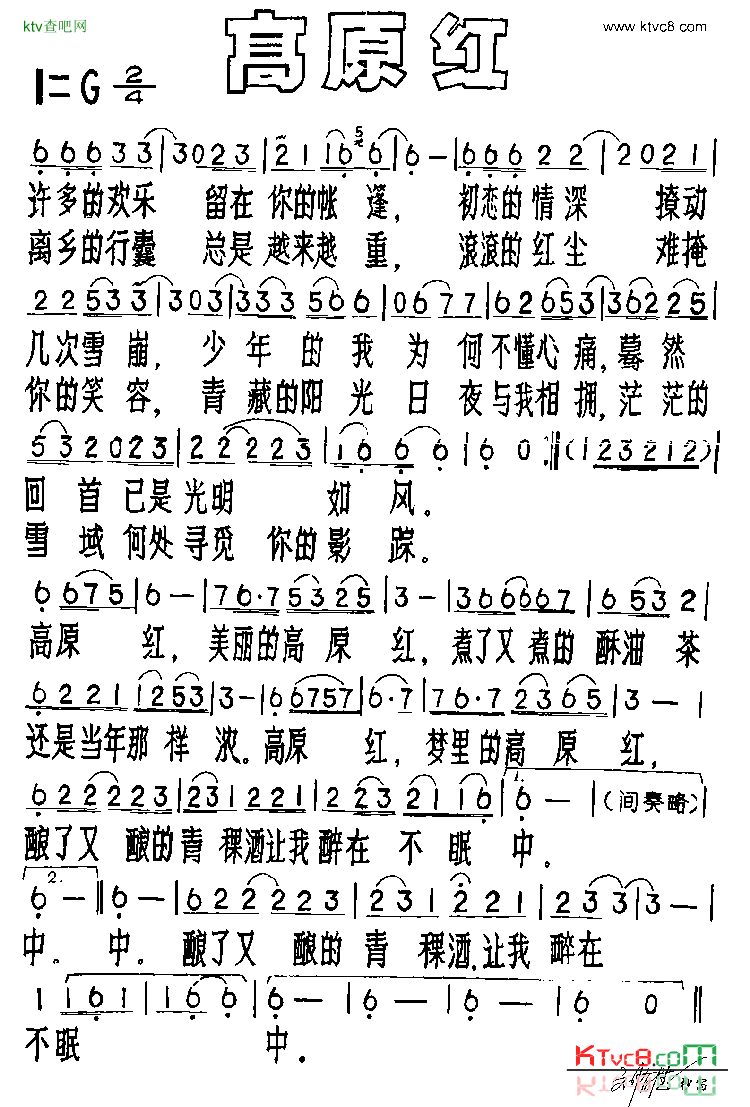 ktv查吧网
www.ktvc8.com
高原红
1=G 2/4
6 6 6 3 3 | 3 0 2 3 | 2 1 1 6 5 6 | 6 — | 6 6 6 2 2 | 2 0 2 1 |
许多的欢乐 留在 你的帐 篷， 初恋的情深 撩动
离乡的行囊 总是 越来越 重， 滚滚的红尘 难掩
2 2 5 3 3 | 3 0 3 | 3 3 3 5 6 6 | 0 6 7 7 | 6 2 6 5 3 | 3 6 2 2 5 |
几次雪崩， 少年的我为何不懂心痛，蓦然
你的笑容， 青藏的阳光日夜与我相拥，茫茫的
5 3 2 0 2 3 | 2 2 2 2 3 | 1 6 6 6 | 6 0 :|| ( 1 2 3 2 1 2 )
回首已是光明 如风。
雪域何处寻觅 你的影踪。
6 6 7 5 | 6 — | 7 6·7 5 3 2 5 | 3 — | 3 6 6 6 6 6 7 | 6 5 3 2 |
高原 红，美丽的高原红，煮了又煮的酥油茶
6 2 2 1 1 2 5 3 | 3 — | 6 6 7 5 7 | 6·7 | 7 6·7 2 3 6 5 | 3 — |
还是当年那样浓。高原 红，梦里的高原红，
6 2 2 2 2 3 | 2 3 1 2 2 1 | 1 2 2 2 3 | 2 2 1 1 6 | 1. 6 — | (间奏略)
酿了又酿的青稞酒让我醉在不眠 中。
2. 6 — || 6 — | 6 2 2 2 2 3 | 2 3 1 2 2 1 | 2 0 2 3 | 3 — |
中。 中。 酿了又酿的青稞酒，让我醉在
1 1 6 1 | 1 6 6 | 6 — | 6 — | 6 — | 6 0 ||
不眠 中。
KTvc8.com